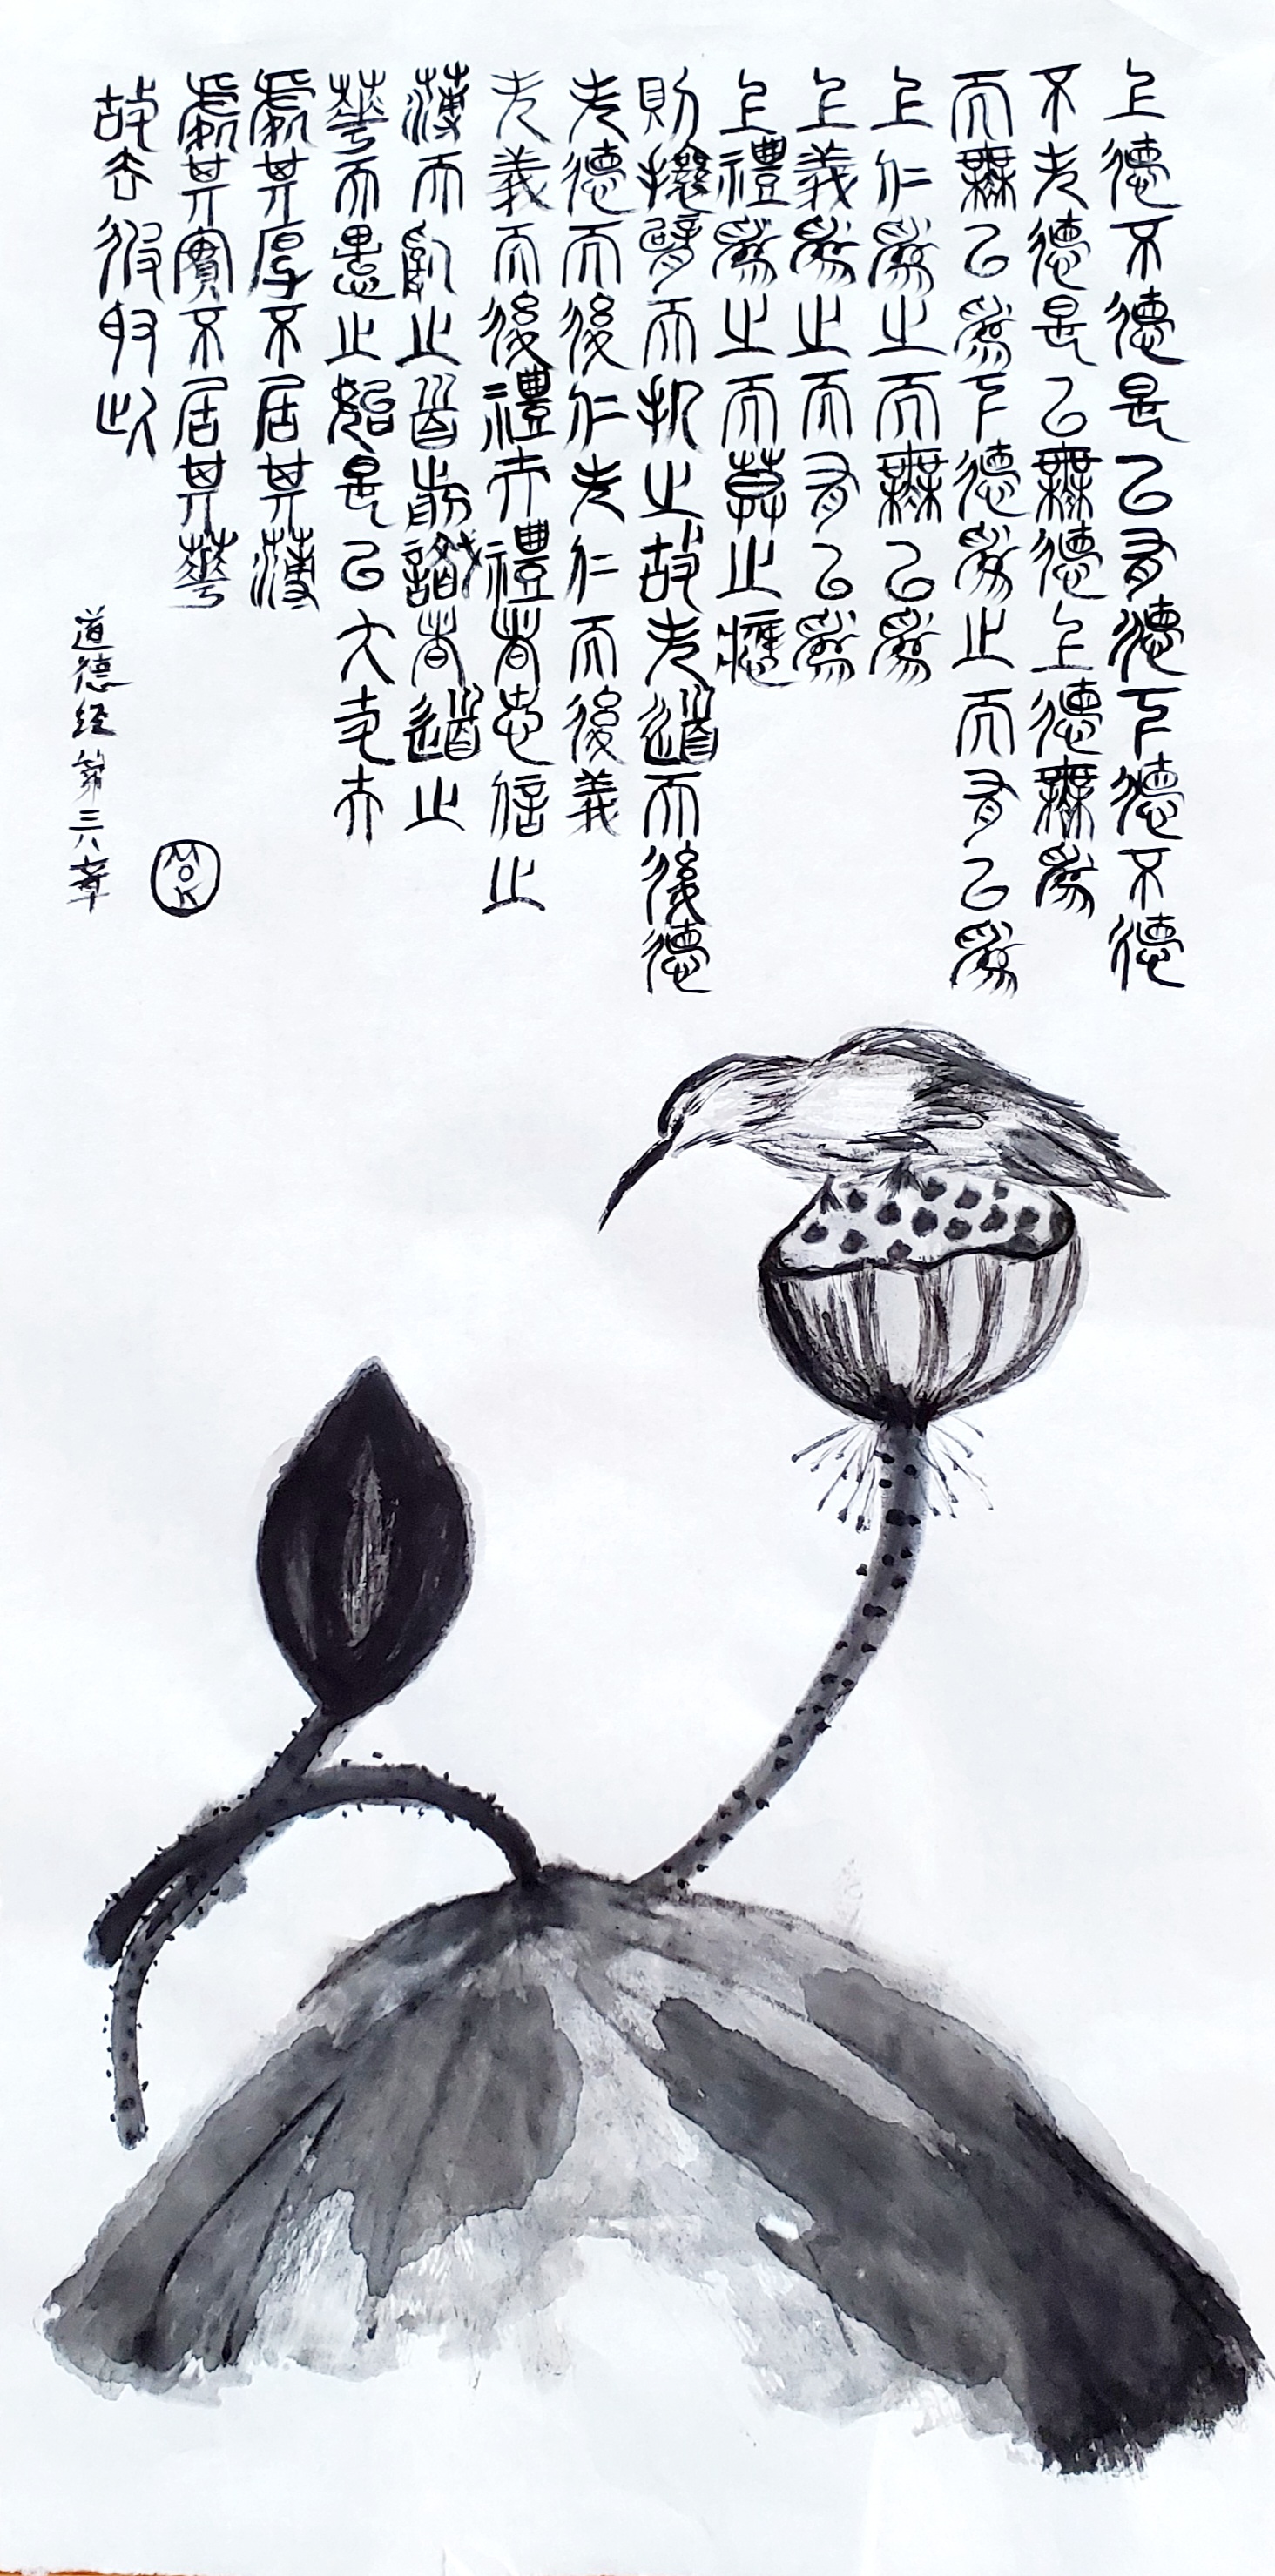 上德不德是以有德下德不德
不失德是以無德上德無為
而無以為下德為之而有以為
上仁為之而無以為
上義為之而有以為
上禮為之而莫之應
則攘臂而扔之故失道而後德
失德而後仁失仁而後義
失義而後禮夫禮者忠信之
薄而亂之首前識者道之
華而愚之始是以大丈夫
處其厚不居其薄
處其實不居其華
故去彼取此
道德经第三八章
MOK